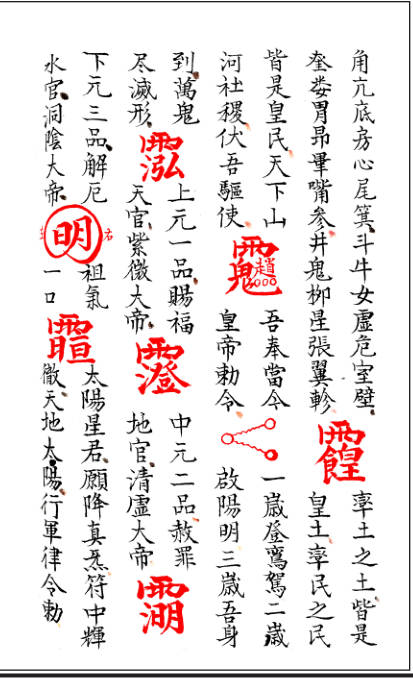 角亢底房心尾箕斗牛女虛危室壁
奎婁胃昴畢嘴參井鬼柳星張翼軫
率土之土皆是
皇土率民之民
皆是皇民天下山
河社稷伏吾驅使
趙
吾奉當今
皇帝勅令
一歲登鸞駕二歲
啟陽明三歲吾身
到萬鬼
尽滅形
上元一品賜福
天官紫微大帝
中元二品赦罪
地官清虛大帝
下元三品解厄
水官洞陰大帝
明
祖氣
一口
太陽星君願降真炁符中輝
徹天地太陽行軍律令勅